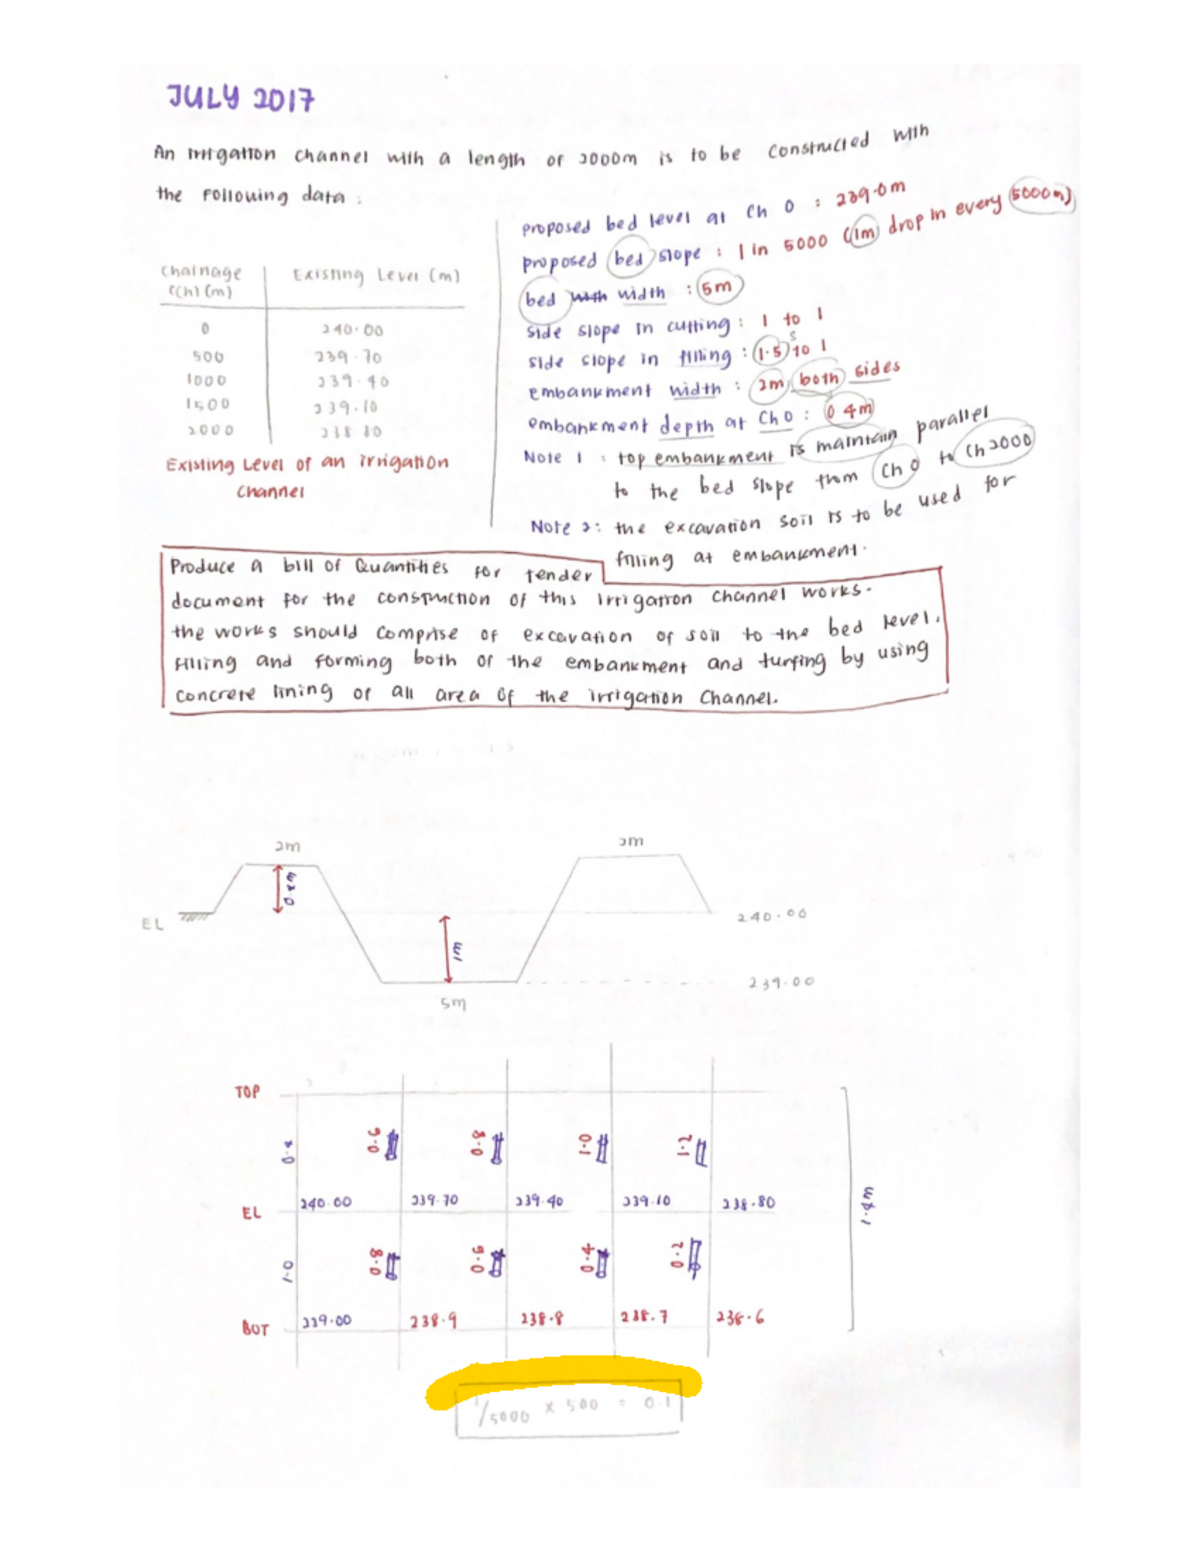 JULY 2017
An irrigation channel with a length of 2000m is to be constructed with
the following data :
Chainage (Ch) (m) | Existing Level (m)
0 240.00
500 239.70
1000 239.40
1500 239.10
2000 238.80
Existing Level of an irrigation
channel
proposed bed level at Ch 0 : 239.0m
proposed bed slope : 1 in 5000 (1m drop in every 5000m)
bed with width : 5m
side slope in cutting : 1 to 1
side slope in filling : 1.5 to 1
s
embankment width : 2m, both sides
embankment depth at Ch 0 : 0.4m
Note 1 : top embankment is maintain parallel
to the bed slope from Ch 0 to Ch 2000
Note 2 : the excavation soil is to be used for
filling at embankment.
Produce a bill of Quantities for tender
document for the construction of this irrigation channel works.
the works should comprise of excavation of soil to the bed level,
filling and forming both of the embankment and turfing by using
concrete lining of all area of the irrigation channel.
2m
2m
0.4m
EL
240.00
1m
239.00
5m
TOP
0.4 0.6 0.8 1.0 1.2
EL 240.00 239.70 239.40 239.10 238.80
1.4m
1.0 0.8 0.6 0.4 0.2
BOT 239.00 238.9 238.8 238.7 238.6
1/5000 x 500 = 0.1